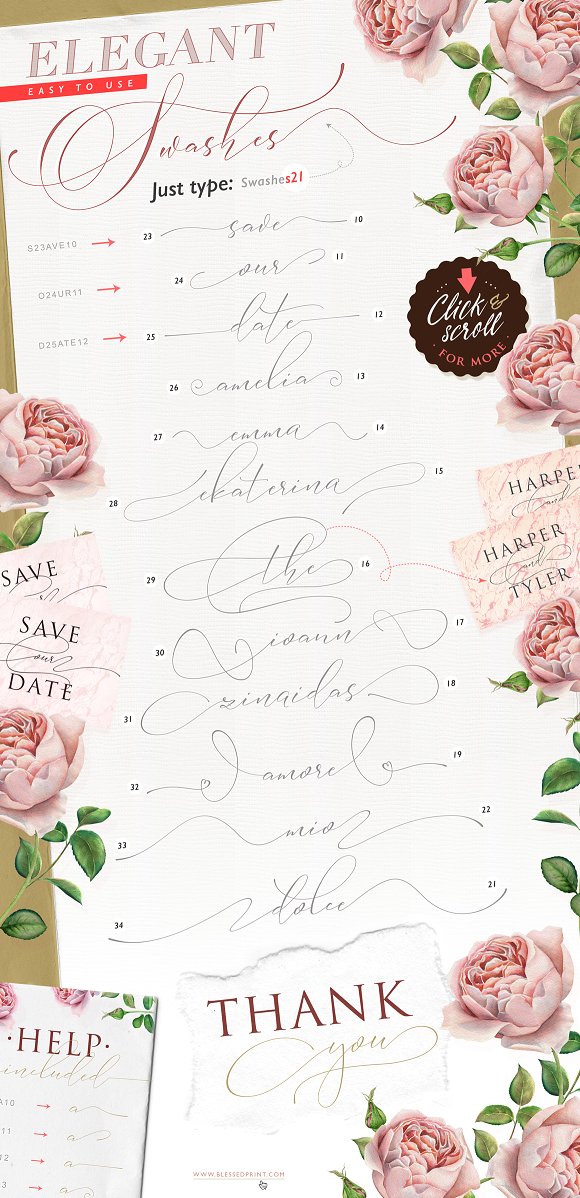 ELEGANT
EASY TO USE
Swashes
Just type: Swashes21
S23AVE10
23 save 10
24 our 11
O24UR11
25 date 12
D25ATE12
Click &
scroll
FOR MORE
26 amelia 13
27 emma 14
28 ekaterina 15
HARPER
and
HARPER
and
TYLER
29 the 16
SAVE
SAVE
our
DATE
30 ioann 17
31 zinaidas 18
32 amore 19
33 mio 22
34 dolce 21
THANK
you
·HELP·
included
A10 a
11 a
12 a
13 a
WWW.BLESSEDPRINT.COM